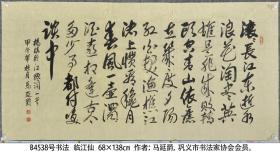 滚滚長江東逝水
浪花淘尽英
雄是非成败转
头空青山依旧
在几度夕陽
红白发渔樵江
渚上惯看秋月
春風一壶浊
酒喜相逢古今
多少事都付笑
谈中
杨慎临江仙词一首
84538号书法 临江仙 68×138cm 作者: 马延爵, 巩义市书法家协会会员。